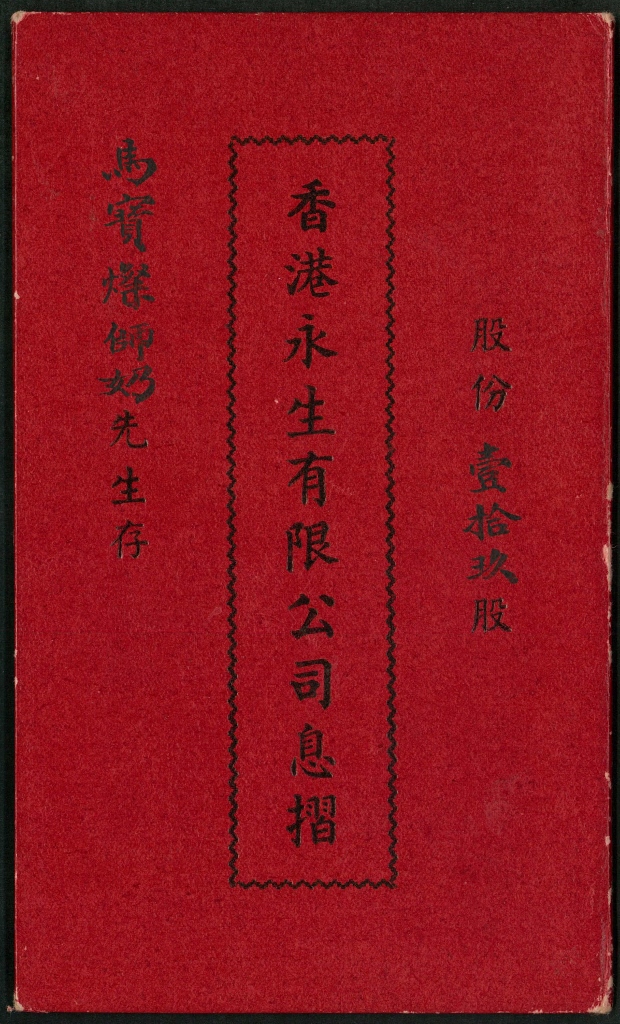 股份壹拾玖股
香港永生有限公司息摺
馬寶燦師奶先生存